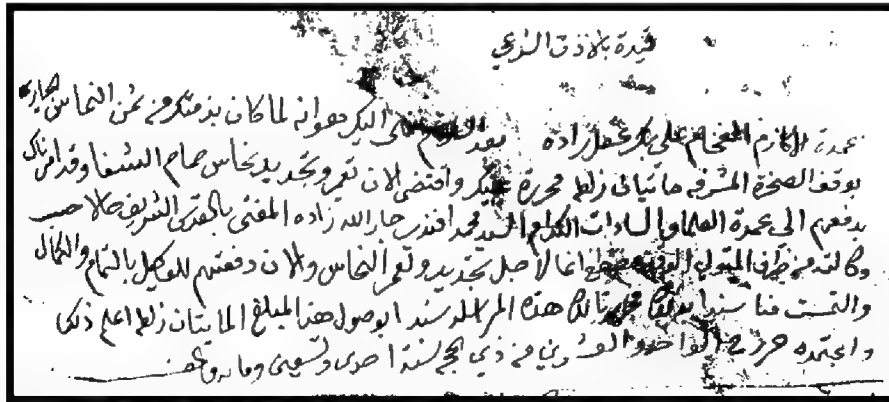 قيدة بالاذن الشرعي
عمدة الاكارم الفخام علي بك عقل زاده بعد السلام اليكم هو انه لما كان بذمتكم من ثمن النحاس الجاري
بوقف الصخرة المشرفه مائتان زلطه محررة عليكم واقتضى الان تعمير وتجديد نحاس حمام الشفا وقد امرناك
بدفعهم الى عمدة العلما والسادات الكرام السيد محمد افندي جار الله زاده المفتي بالقدس الشريف حالا حسب
وكالته من طرف المتولي لاجل تجديد وتعمير النحاس والان دفعتهم للوكيل بالتمام والكمال
والتمست منا سندا هذه المراسلة سندا بوصول هذا المبلغ المايتان زلطه اعلم ذلك
واعتمده حرر في الواحد والعشرين من ذي الحجة سنة احدى وتسعين ومايه والف